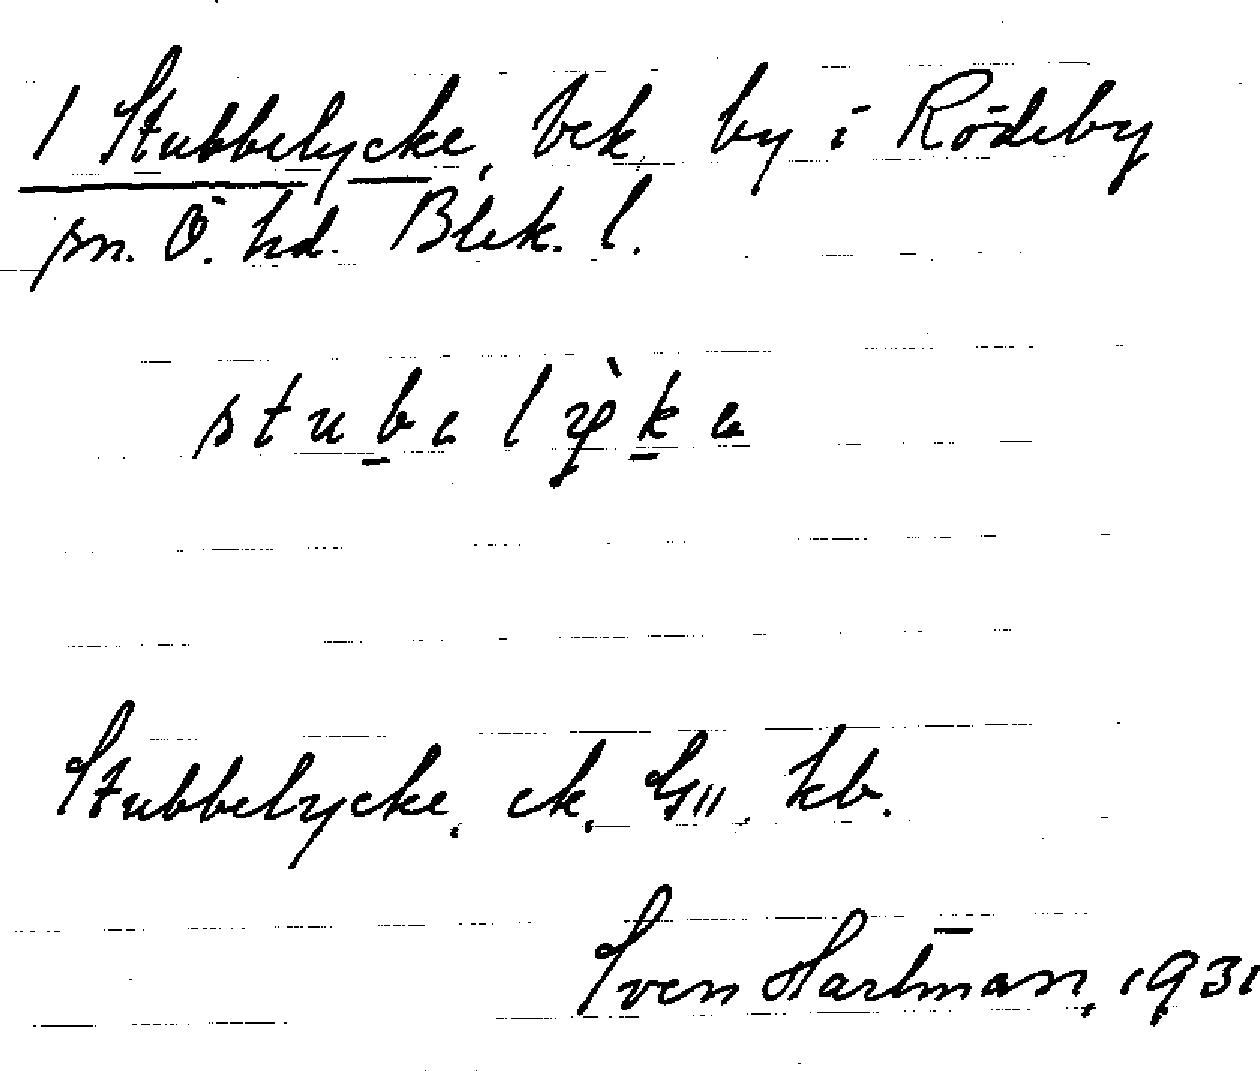 1 Stubbelycke, bek. by i Rödeby
sn. Ö. hd. Blek. l.
Stubbelycke, ek. kb.
Sven Hartman, 1931